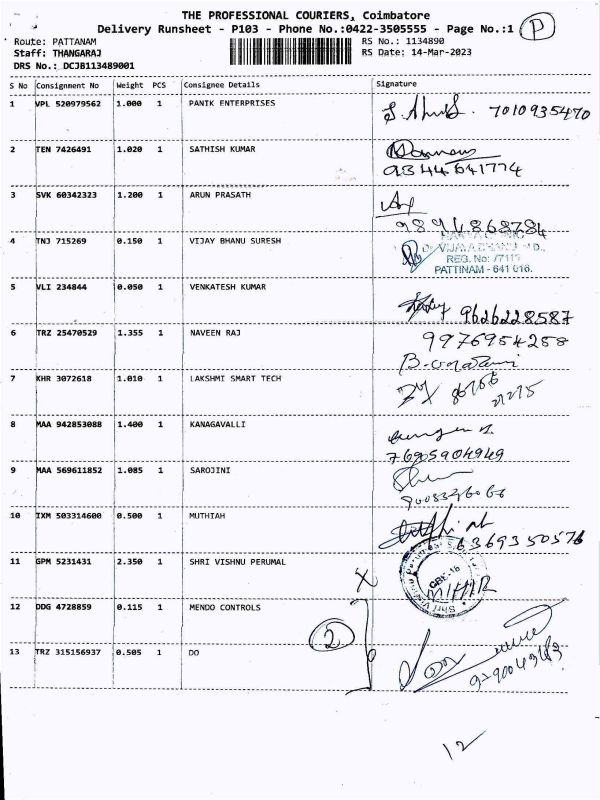 THE PROFESSIONAL COURIERS, Coimbatore
Delivery Runsheet - P103 - Phone No.:0422-3505555 - Page No.:1 P
Route: PATTANAM RS No.: 1134890
Staff: THANGARAJ RS Date: 14-Mar-2023
DRS No.: DCJB113489001
S No Consignment No Weight PCS Consignee Details Signature
1 VPL 520979562 1.000 1 PANIK ENTERPRISES 7010935470
2 TEN 7426491 1.020 1 SATHISH KUMAR
9344641774
3 SVK 60342323 1.200 1 ARUN PRASATH
9894868784
4 TNJ 715269 0.150 1 VIJAY BHANU SURESH
REG. No: 77115
PATTINAM - 641 016.
5 VLI 234844 0.050 1 VENKATESH KUMAR
9626228587
6 TRZ 25470529 1.355 1 NAVEEN RAJ 9976954258
7 KHR 3072618 1.010 1 LAKSHMI SMART TECH
8 MAA 942853088 1.400 1 KANAGAVALLI
7695904949
9 MAA 569611852 1.085 1 SAROJINI
10 IXM 503314600 0.500 1 MUTHIAH
6369350576
11 GPM 5231431 2.350 1 SHRI VISHNU PERUMAL
CBE-16
12 DDG 4728859 0.115 1 MENDO CONTROLS
2
13 TRZ 315156937 0.505 1 DO
12